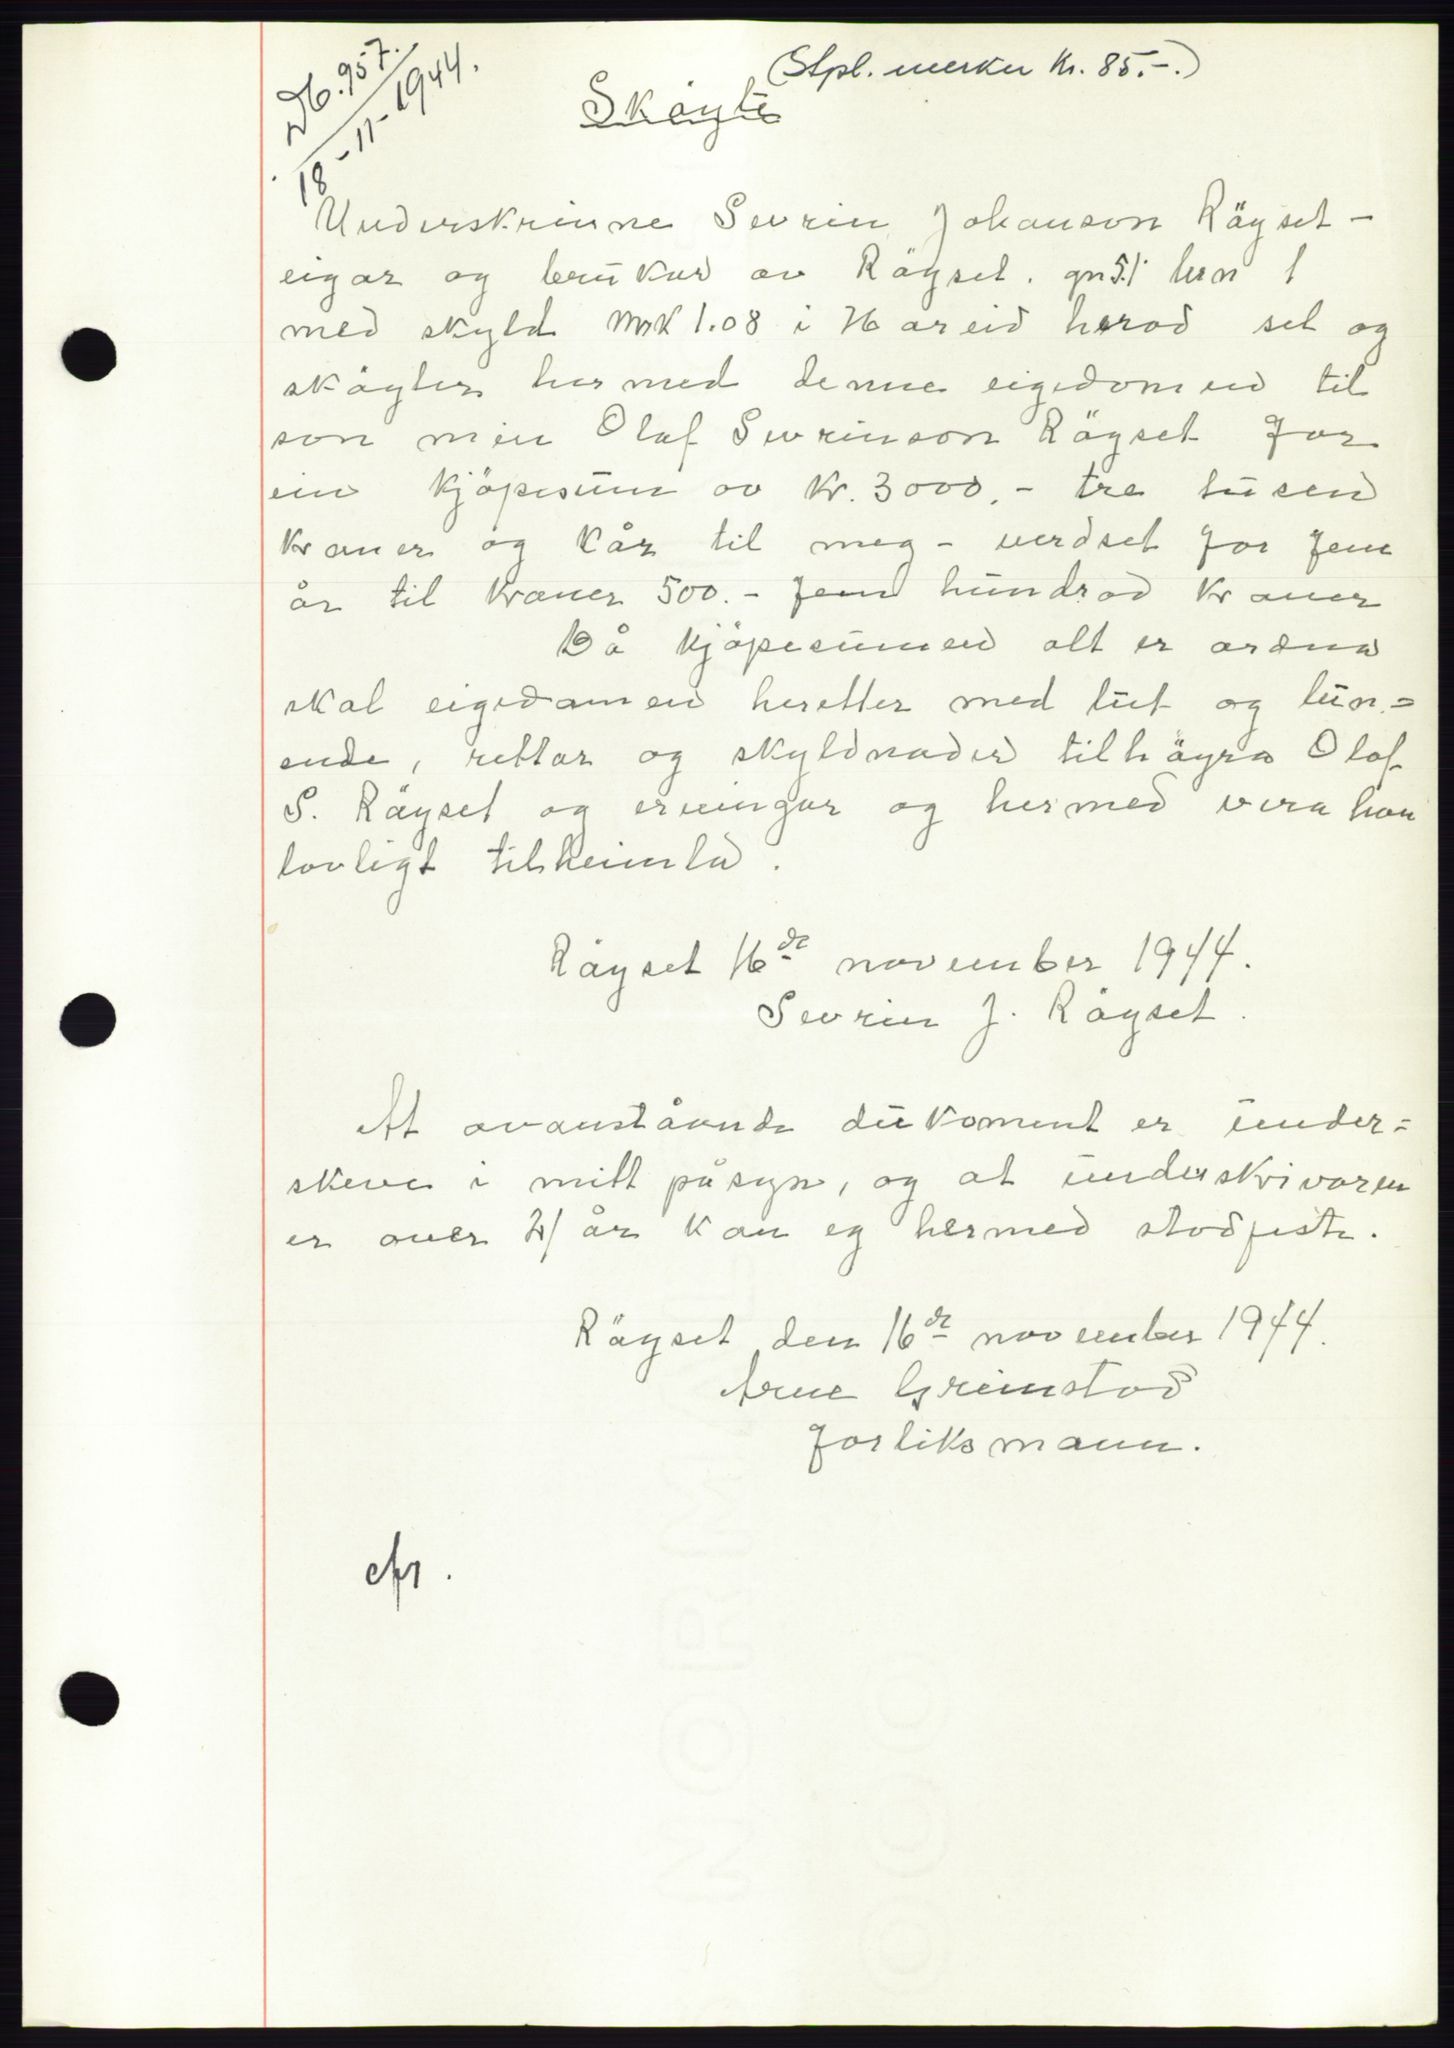 Db. 957.
18-11-1944.
(Stpl. merker Kr. 85.-.)
Skøyte
Underskrivne Sevrin Johanson Røyset -
eigar og brukar av Røyset. gn 51 brn 1
med skyld mrk 1.08 i Hareid herad sel og
skøyter hermed denne eigedomen til
son min Olaf Sevrinson Røyset for
ein kjøpesum av kr. 3000.- tre tusen
kroner og kår til meg - verdset for fem
år til kroner 500.- fem hundrad kroner
Då kjøpesumen alt er ordna
skal eigedomen heretter med lut og lun-
ende, rettar og skyldnader tilhøyra Olaf
S. Røyset og ervingar og hermed vera han
lovligt tilheimla.
Røyset 16de november 1944.
Sevrin J. Røyset.
At ovanståande dukoment er under-
skeve i mitt påsyn, og at underskrivaren
er over 21 år kan eg hermed stadfeste.
Røyset den 16de november 1944.
Arne Grimstad
forliksmann.